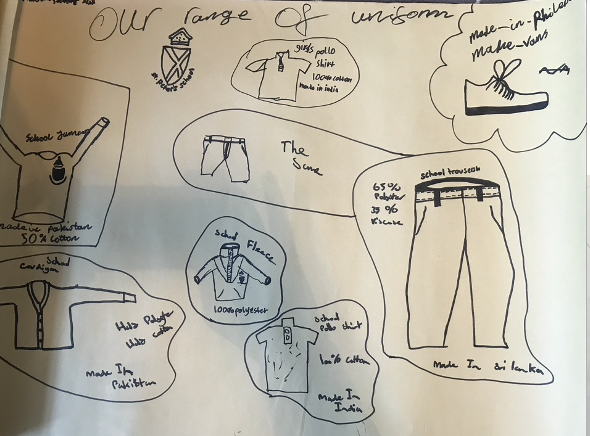 Our range of uniform
St. Peter's School
girls pollo
shirt
100% cotton
made in india
made-in-Phile
make-vans
School Jumper
made in Pakistan
50% cotton
The
Same
school trousers
65%
35%
viscose
Made In Sri lanka
School
cardigan
cotton
made In
Pakistan
school Fleece
100% polyester
school
Pollo shirt
100% cotton
Made In
India